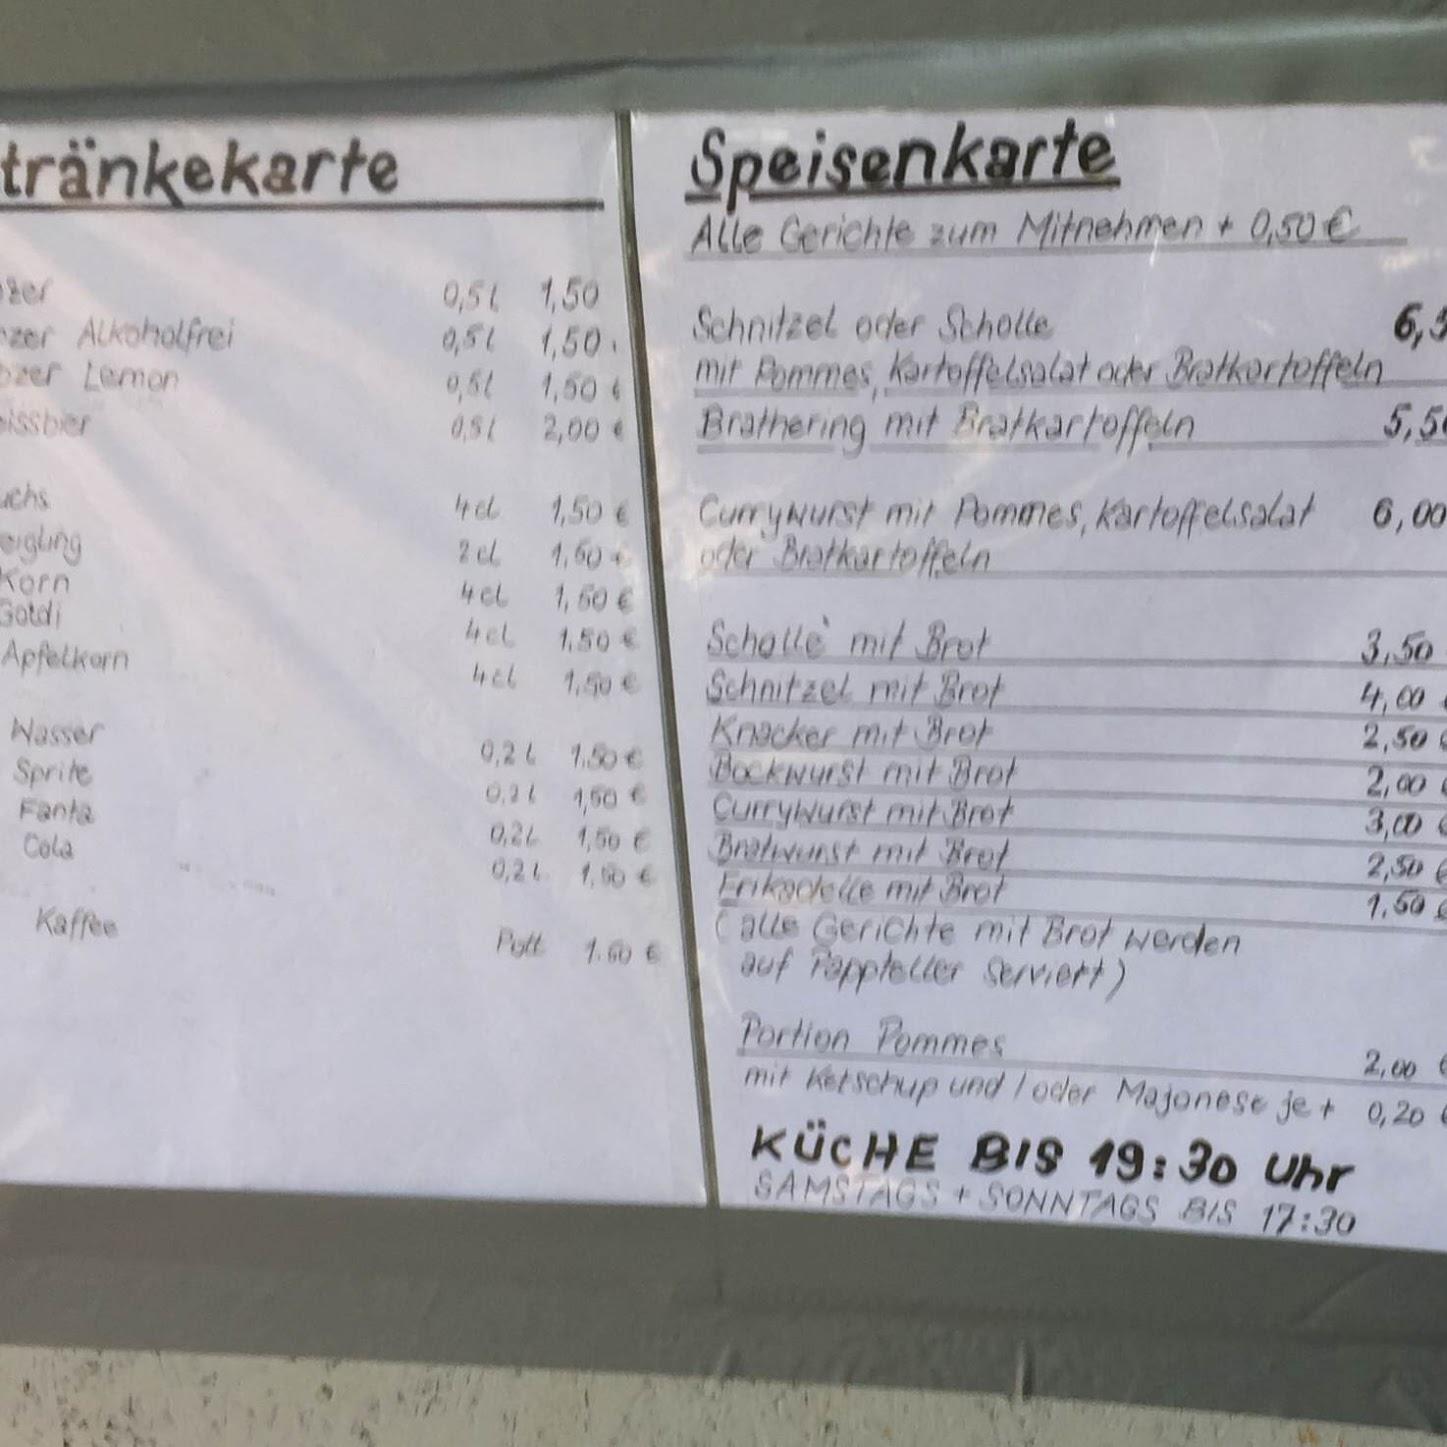 tränkekarte
0,5l 1,50
Alkoholfrei 0,5l 1,50
Lemon 0,5l 1,50 €
0,5l 2,00 €
4cl 1,50 €
2cl 1,50 €
Korn 4cl 1,50 €
Goldi 4cl 1,50 €
Apfelkorn 4cl 1,50 €
Wasser 0,2l 1,50 €
Sprite 0,2l 1,50 €
Fanta 0,2l 1,50 €
Cola 0,2l 1,50 €
Kaffee Pott 1.50 €
Speisenkarte
Alle Gerichte zum Mitnehmen + 0,50 €
Schnitzel oder Scholle
mit Pommes, Kartoffelsalat oder Bratkartoffeln
Brathering mit Bratkartoffeln 5,50
Currywurst mit Pommes, Kartoffelsalat 6,00
oder Bratkartoffeln
Scholle mit Brot 3,50
Schnitzel mit Brot 4,00 €
Knacker mit Brot 2,50 €
Bockwurst mit Brot 2,00 €
Currywurst mit Brot 3,00 €
Bratwurst mit Brot 2,50 €
Frikadelle mit Brot 1,50 €
(alle Gerichte mit Brot werden
auf Pappteller serviert)
Portion Pommes 2,00 €
mit Ketschup und / oder Majonese je + 0,20 €
KÜCHE BIS 19:30 Uhr
SAMSTAGS + SONNTAGS BIS 17:30